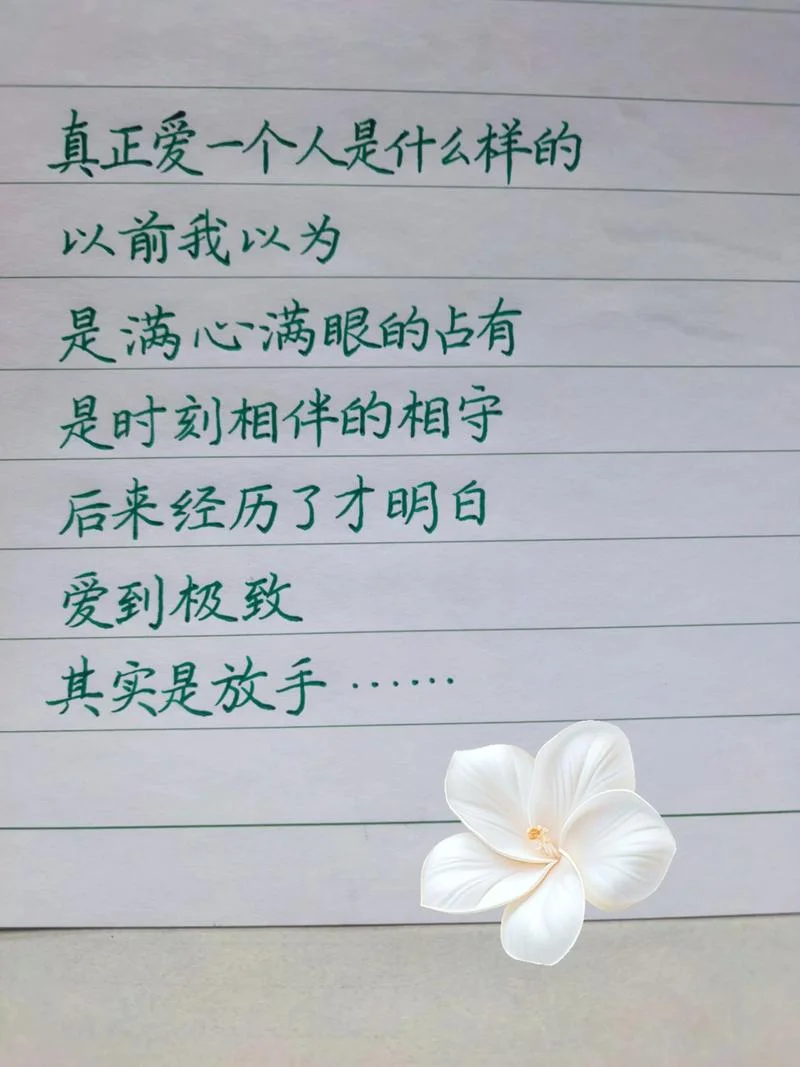 真正爱一个人是什么样的
以前我以为
是满心满眼的占有
是时刻相伴的相守
后来经历了才明白
爱到极致
其实是放手……